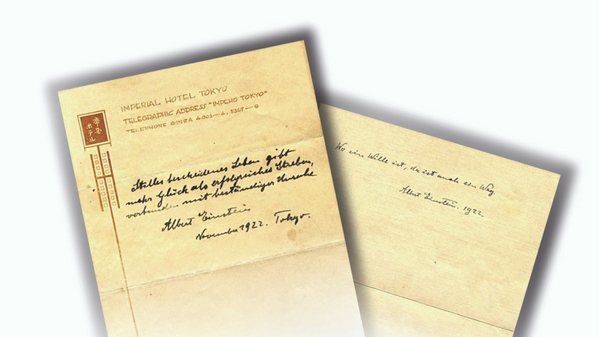 IMPERIAL HOTEL TOKYO
TELEGRAPHIC ADDRESS "IMPEHO TOKYO"
TELEPHONE GINZA
ホテル
Stilles bescheidenes Leben gibt
mehr Glück als erfolgreiches Streben,
verbunden mit beständiger Unruhe.
Albert Einstein
November 1922. Tokyo.
Wo ein Wille ist, da ist auch ein Weg.
Albert Einstein. 1922.